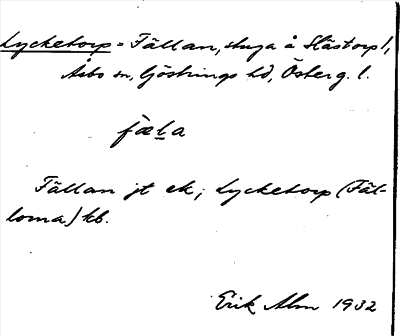 Lycketorp = Fällan, stuga å Slästorp 1,
Åsbo sn, Göstrings hd, Österg. l.
fæḷa
Fällan jt ek; Lycketorp (Fäl-
lorna) kb.
Erik Alm 1932